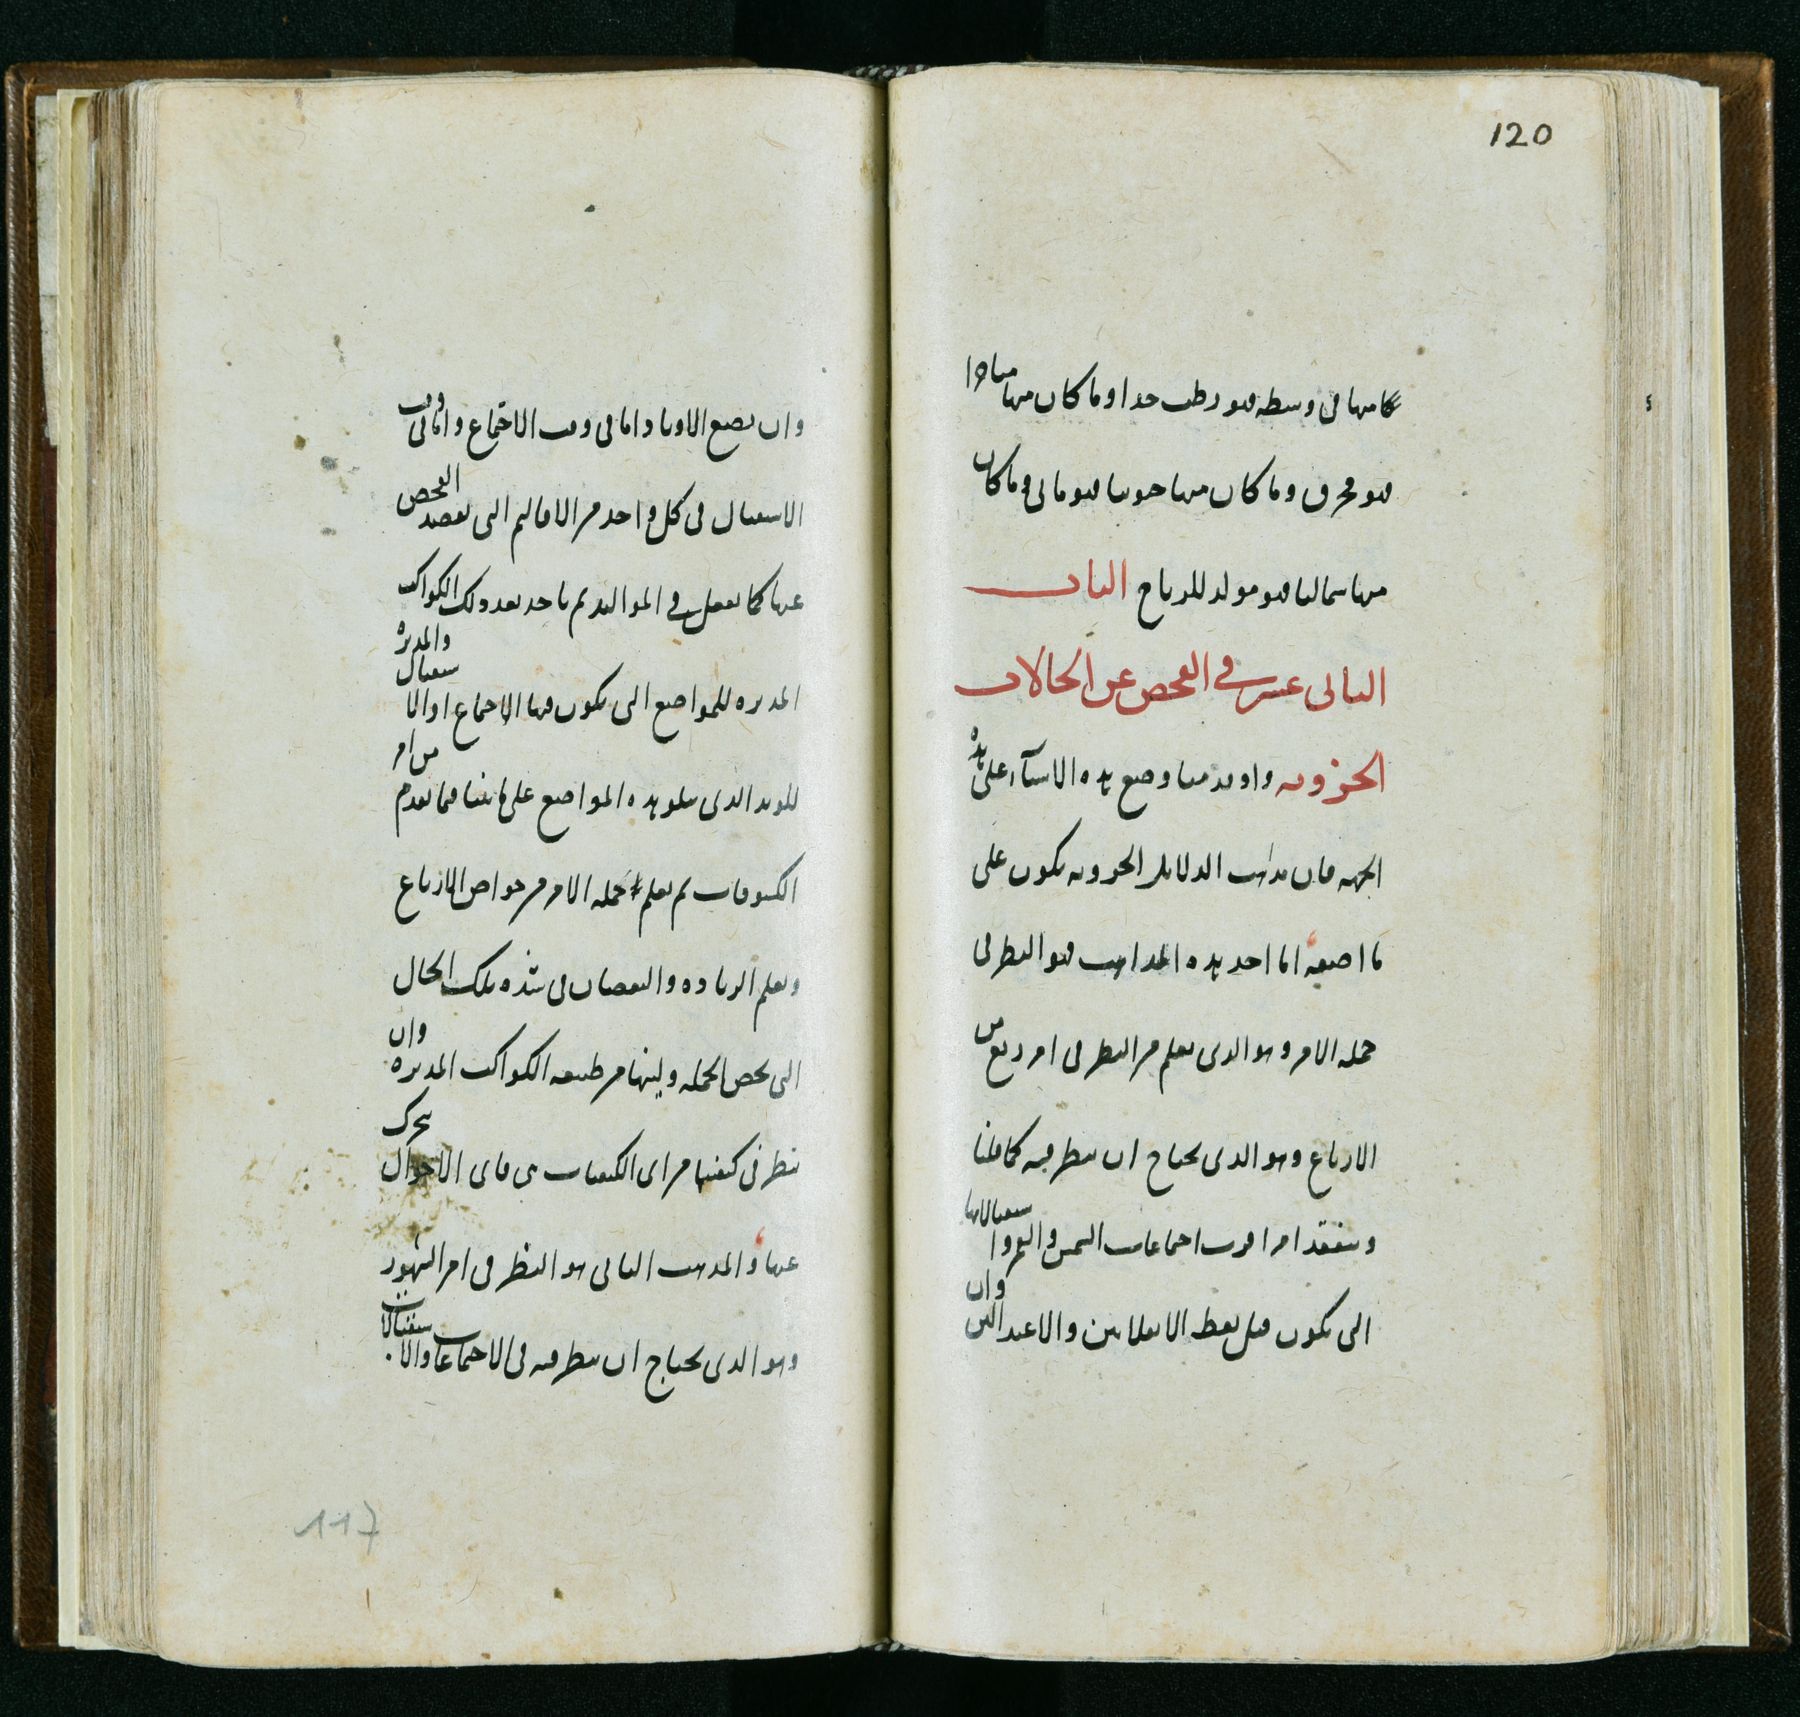 120
كان منها في وسطه فهو رطب جدا وما كان منها متاخرا
فهو محرق وما كان منها جنوبيا فهو مالي وما كان
منها شماليا فهو مولد للرياح الباب
الثاني عشر في الفحص عن الحالات
الجزوية واذ قد بينا وضع هذه الاشيآء على هذه
الجهة فان مذاهب الدلايل الجزوية تكون على
ما اصفه اما احد هذه المذاهب فهو النظر في
جملة الامر وهو الذي يعلم من النظر في امر ربع من
الارباع وهو الذي يحتاج ان ينظر فيه كما قلنا
ويتفقد امر اقرب اجتماعات الشمس والقمر واستقبالاتها
التي تكون قبل نقط الانقلابين والاعتدالين وان
وان يضع الاوتاد اما في وقت الاجتماع واما في وقت
الاستقبال في كل واحد من الاقاليم التي يقصد الفحص
عنها كما يفعل في المواليد ثم ياخذ بعد ذلك الكواكب
المدبرة للمواضع التي يكون فيها الاجتماع او الاستقبال والمدبرة
للوتد الذي يتلو هذه المواضع على ما بينا فيما تقدم من امر
الكسوفات ثم يعلم جملة الامر من خواص الارباع
ويعلم الزيادة والنقصان في شدة تلك الحال
التي تخص الجملة ولينها من طبيعة الكواكب المدبرة وان
ينظر في كيفيتها من اى الكيفيات هي فاى الاحوال تحرك
عنها والمذهب الثاني هو النظر في امر الشهور
وهو الذي يحتاج ان ينظر فيه في الاجتماعات والاستقبالات
117